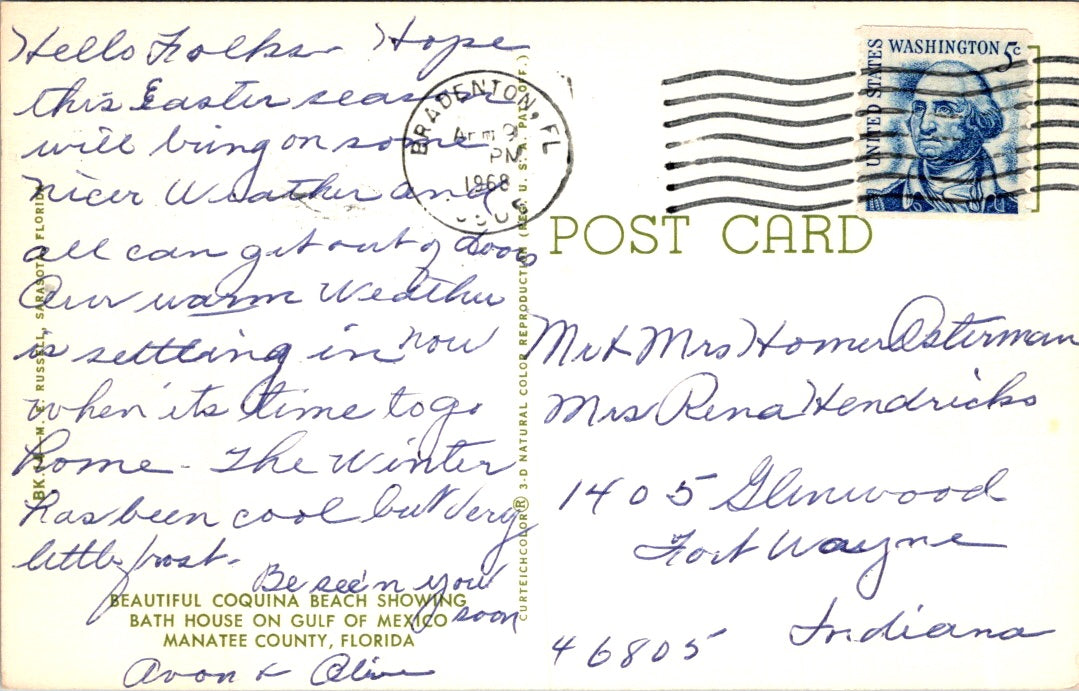 Hello Folks - Hope
this Easter season
will bring on some
nicer Weather and
all can get out of doors
Our warm Weather
is settling in now
when its time to go
home - The Winter
has been cool but Very
little frost.
Be see'n you
soon
Avon & Olive
BEAUTIFUL COQUINA BEACH SHOWING
BATH HOUSE ON GULF OF MEXICO
MANATEE COUNTY, FLORIDA
BK. M. E. RUSSELL, SARASOTA, FLORIDA
CURTEICHCOLOR® 3-D NATURAL COLOR REPRODUCTION (REG. U. S. A. PAT. OFF.)
BRADENTON, FL
9
PM
1968
UNITED STATES
WASHINGTON 5c
POST CARD
Mr & Mrs Homer Osterman
Mrs Rena Hendricks
1405 Glenwood
Fort Wayne
Indiana
46805